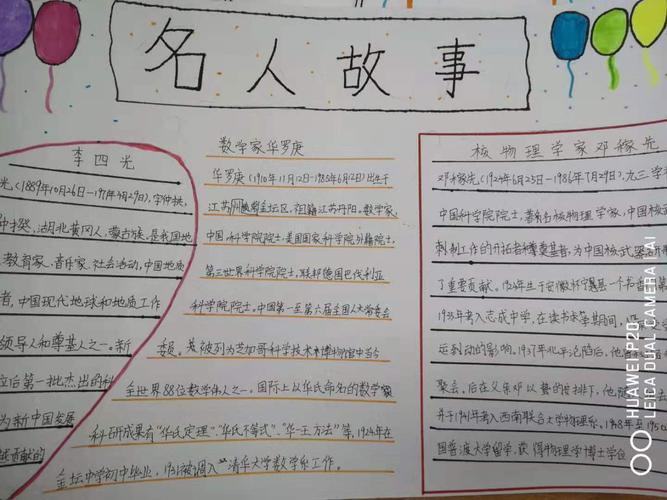 名人故事
李四光
光(1889年10月26日-1971年4月29日),字仲拱,
仲揆,湖北黄冈人,蒙古族,是我国地
教育家、音乐家、社会活动,中国地质
者,中国现代地球和地质工作
领导人和尊基人之一。新
立后第一批杰出的科
为新中国发展
贡献的
数学家华罗庚
华罗庚(1910年11月12日-1985年6月12日)出生于
江苏 金坛区,祖籍江苏丹阳。数学家,
中国,科学院院士,美国国家科学院外籍院士,
第三世界科学院院士,联邦德国巴代利亚
科学院院士。中国第一至第六届全国人大常委会
委员。被列为芝加哥科学技术博物馆中当今
全世界88位数学伟人之一。国际上以华氏命名的数学
科研成果有“华氏定理”、“华氏不等式”、“华—王方法”等,1924年在
金坛中学初中毕业,1931被调入“清华大学数学系工作。
核物理学家邓稼先
邓稼先(1924年6月25日—1986年7月29日),九三学
中国科学院院士,著名核物理学家,中国核武
制工作的开拓者和奠基者,为中国核武器
了重要贡献。1924年生于安徽怀宁县一个书香
1935年考入志成中学,在读书求学期间,
运动的影响。1937年北平沦陷后,他
聚会,后在父亲 安排下,他
并于1941年考入西南联合大学物理系,1948年至1950
国普渡大学留学,获得物理学博士学位
HUAWEI P20
LEICA DUAL CAMERA | AI